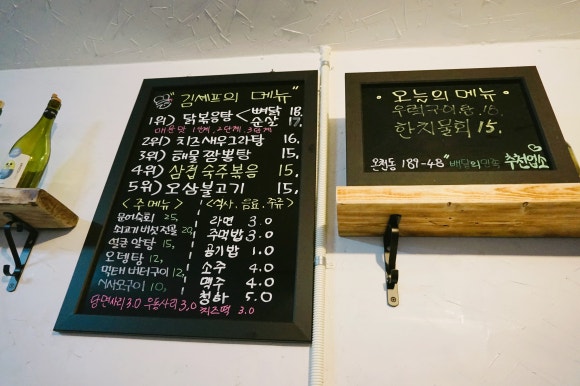 "김셰프의 메뉴"
1위) 닭볶음탕 < 뼈닭 18.
순살 17.
매운맛 1단계, 2단계, 3단계
2위) 치즈새우그라탕 16.
3위) 해물짬뽕탕 15,
4위) 삼겹숙주볶음 15,
5위) 오삼불고기 15,
<주 메뉴>
문어숙회 25,
쇠고기버섯전골 20,
얼큰알탕 15,
오뎅탕 12,
먹태버터구이 12,
식사.음료.주류>
라면 3.0
주먹밥 3.0
공기밥 1.0
소주 4.0
맥주 4.0
청하 5.0
당면사리 3.0 우동사리 3.0
치즈떡 3.0
· 오늘의 메뉴 ·
우럭구이탕 16.
한치물회 15.
온천동 187-48" 배달의민족 추천업소